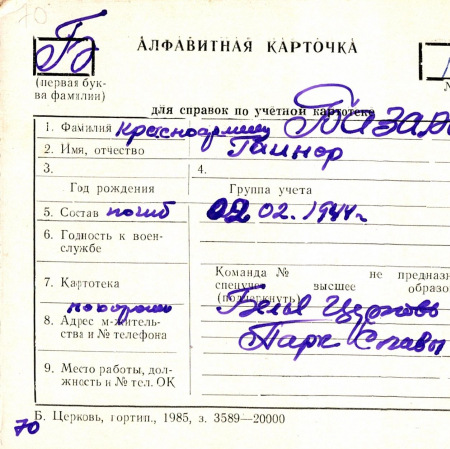 70
Б
АЛФАВИТНАЯ КАРТОЧКА
(первая бук-
ва фамилии)
для справок по учетной картотеке
1. Фамилия красноармеец
2. Имя, отчество
3. 4.
Год рождения Группа учета
5. Состав погиб 02 02. 1944 г
6. Годность к воен-
службе
Команда № не предназн
7. Картотека спецучет высшее образо
(подчеркнуть)
похоронен Белая Церковь
8. Адрес м-житель-
ства и № телефона Парк Славы
9. Место работы, дол-
жность и № тел. ОК
Б. Церковь, гортип., 1985, з. 3589—20000
70